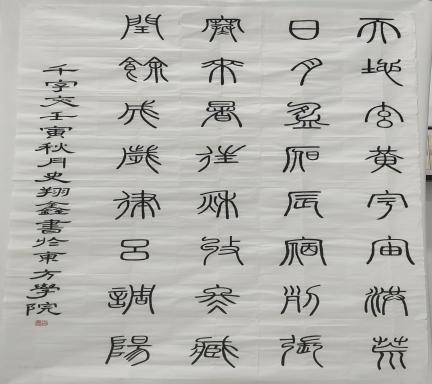 天地玄黃宇宙洪荒
日月盈昃辰宿列張
寒來暑往秋收冬藏
閏餘成歲律呂調陽
千字文壬寅秋月史翔鑫書於東方學院